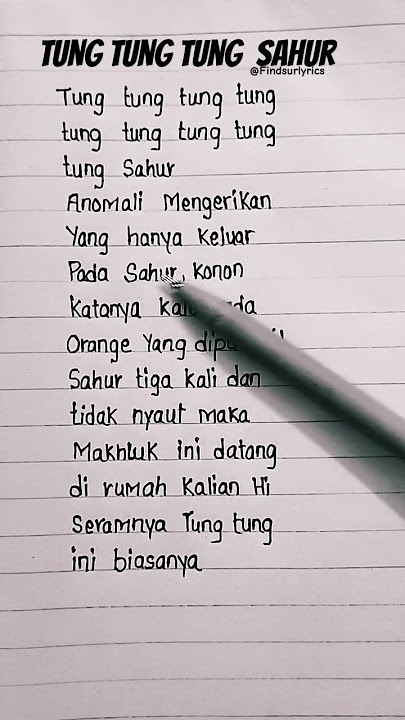 TUNG TUNG TUNG SAHUR
@Findsurlyrics
Tung tung tung tung
tung tung tung tung
tung Sahur
Anomali Mengerikan
Yang hanya Keluar
Pada Sahur, Konon
Katanya da
Orange Yang
Sahur tiga kali dan
tidak nyaut maka
Makhluk ini datang
di rumah Kalian Hi
Seramnya Tung tung
ini biasanya